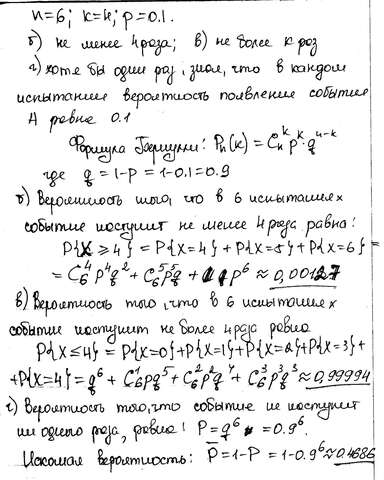 n=6; k=4; p=0.1.
б) не менее 4 раза; в) не более к раз
г) хотя бы один раз, зная, что в каждом
испытание вероятность появление событие
А равна 0.1
Формула Бернулли: Pₙ(k)=Cₙᵏ pᵏ·qⁿ⁻ᵏ
где q=1-p=1-0.1=0.9
б) Вероятность того, что в 6 испытаниях
событие наступит не менее 4 раза равна:
P{X≥4} = P{X=4} + P{X=5} + P{X=6} =
= C₆⁴p⁴q² + C₆⁵p⁵q + p⁶ ≈ 0,00127
в) Вероятность того, что в 6 испытаниях
событие наступит не более 4 раза равна
P{X≤4} = P{X=0}+P{X=1}+P{X=2}+P{X=3}+
+P{X=4}=q⁶+C₆¹pq⁵+C₆²p²q⁴+C₆³p³q³≈0,99994
г) Вероятность того, что событие не наступит
ни одного раза, равна: P=q⁶=0.9⁶.
Искомая вероятность: P̅=1-P=1-0.9⁶≈0.4686